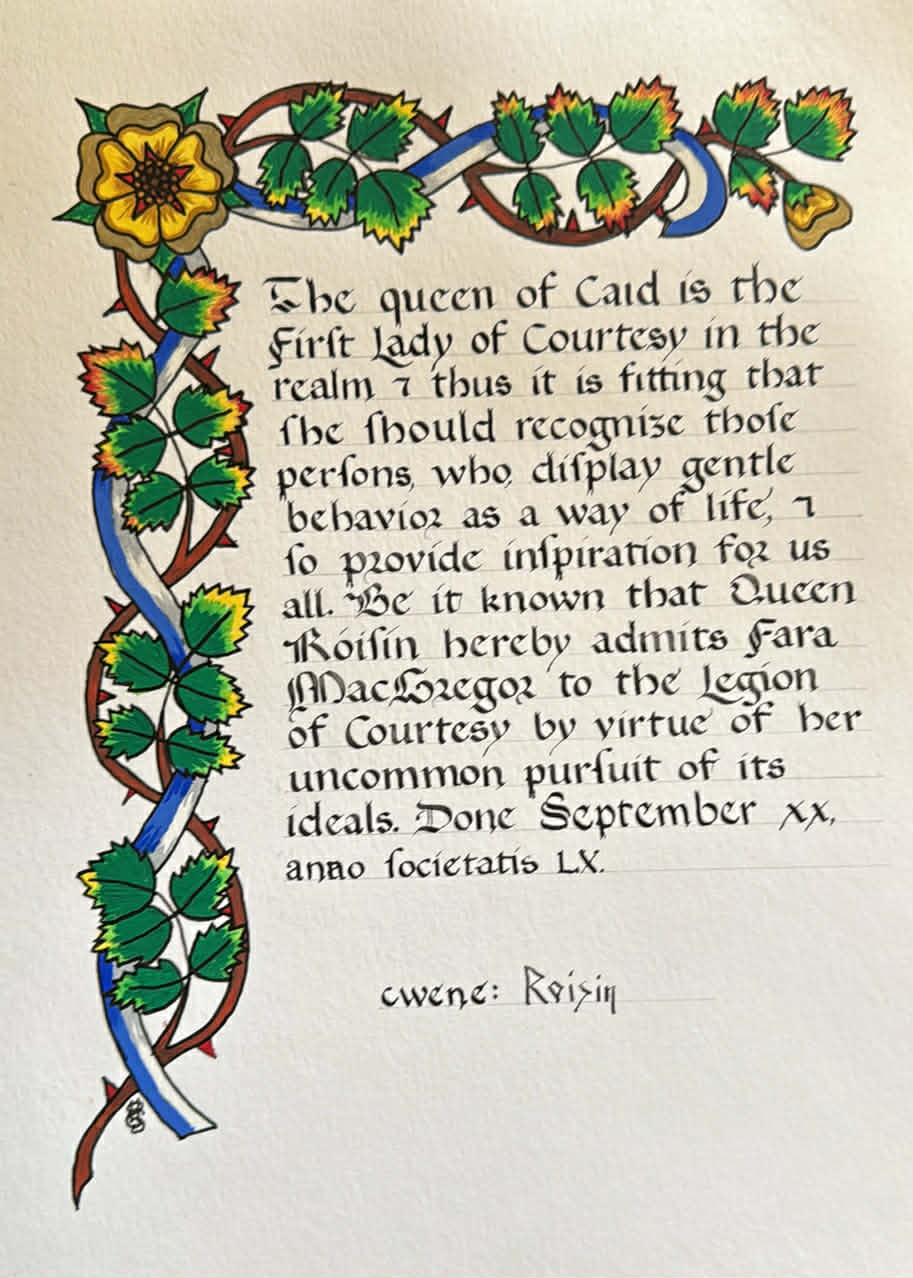 The queen of Caid is the
Firſt Lady of Courtesy in the
realm ⁊ thus it is fitting that
ſhe ſhould recognize thoſe
perſons, who, diſplay gentle
behavioꝛ as a way of life, ⁊
ſo pꝛovide inſpiration foꝛ us
all. Be it known that Queen
Róiſín hereby admits Fara
MacGꝛegoꝛ to the Legion
of Courtesy by virtue of her
uncommon purſuit of its
ideals. Done September xx,
anno ſocietatis LX.
cwene: Roisin